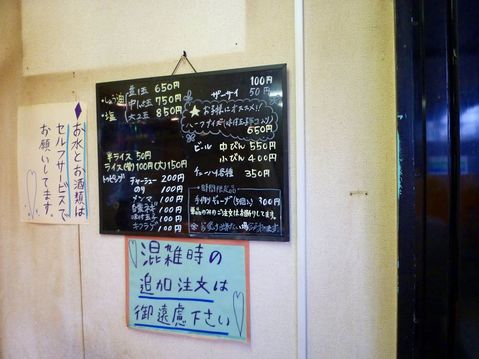 お水とお酒類は
セルフサービスで
お願いしてます。
・しょう油
・塩
並1玉 650円
中1.5玉 750円
大2玉 850円
100円
ザーサイ 50円
お子様にオススメ!!
ハーフサイズ
650円
ビール 中びん 550円
小びん 400円
チューハイ各種 350円
半ライス 50円
ライス(並)100円(大)150円
トッピング
チャーシュー 200円
のり 100円
メンマ 100円
100円
味付玉子 100円
キクラゲ 100円
時間限定品
手作りギョーザ(5個入) 300円
単品のみのご注文はお断りしてます。
混雑時の
追加注文は
御遠慮下さい